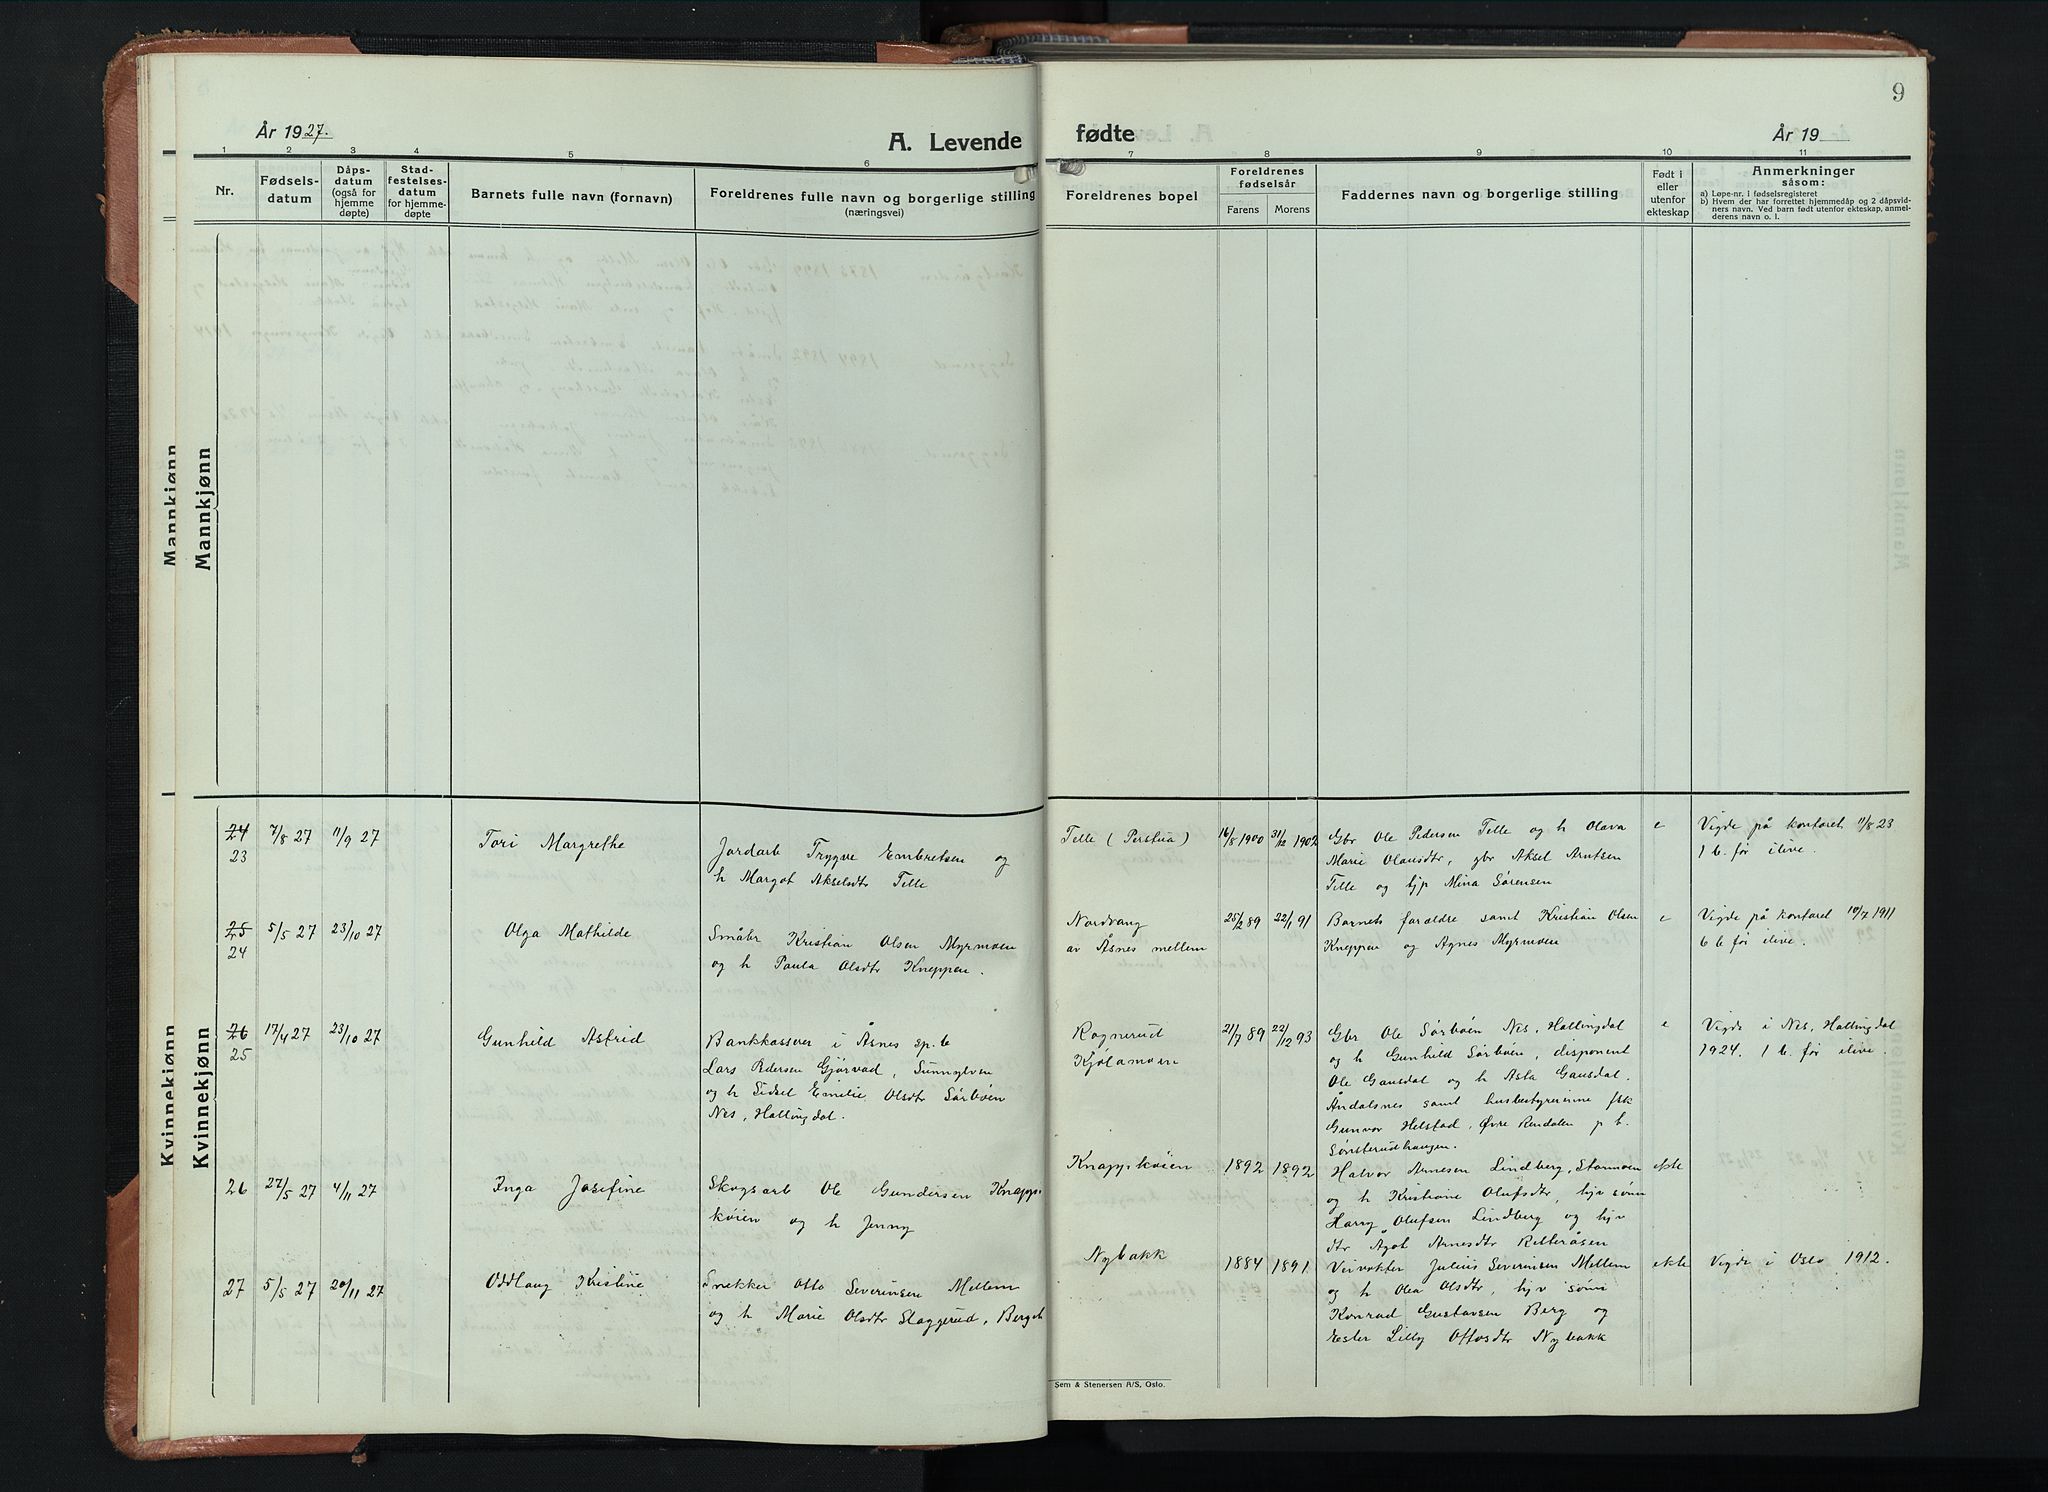 År 1927.
A. Levende
fødte
År 19
9
1 2 3 4 5 6 7 8 9 10 11
Nr.
Fødsels-
datum
Dåps-
datum
(også for
hjemme
døpte)
Stad-
festelses-
datum
for hjemme-
døpte
Barnets fulle navn (fornavn)
Foreldrenes fulle navn og borgerlige stilling
(næringsvei)
Foreldrenes bopel
Foreldrenes
fødselsår
Farens Morens
Faddernes navn og borgerlige stilling
Født i
eller
utenfor
ekteskap
Anmerkninger
såsom:
a) Løpe-nr. i fødselsregisteret
b) Hvem der har forrettet hjemmedåp og 2 dåpsvid-
ners navn. Ved barn født utenfor ekteskap, anmel-
derens navn o. l.
Mannkjønn
Mannkjønn
Kvinnekjønn
Kvinnekjønn
24
23
7/8 27
11/9 27
Tori Margrethe
Jordarb Trygve Embretsen og
h Margot Akselsdtr Telle
Telle (Perstua)
16/8 1900
31/12 1902
Gbr Ole Pedersen Telle og h Olava
Marie Olausdtr, gbr Aksel Arntsen
Telle og hjp Mina Sørensen
e
Vigde på kontoret 11/8 23
1 b. før ilive.
25
24
5/5 27
23/10 27
Olga Mathilde
Småbr Kristian Olsen Myrmoen
og h Paula Olsdtr Kneppen.
Nordvang
av Åsnes mellem
25/2 89
22/1 91
Barnets forældre samt Kristian Olsen
Kneppen og Agnes Myrmoen
e
Vigde på kontoret 10/7 1911
6 b før ilive.
26
25
17/4 27
23/10 27
Gunhild Astrid
Bankkasserer i Åsnes sp.b
Lars Pedersen Gjørvad, Sunnylven
og h Sidsel Emilie Olsdtr Sørbøen
Nes, Hallingdal.
Rognerud
Kjølamoen
21/7 89
22/12 93
Gbr Ole Sørbøen Nes, Hallingdal
og h Gunhild Sørbøen, disponent
Ole Gausdal og h Asta Gausdal.
Åndalsnes samt husbestyrerinne frk
Gunvor Helstad, Øvre Rendalen p. b.
Sønsterudhaugen.
e
Vigde i Nes, Hallingdal
1924. 1 b. før ilive.
26
27/5 27
4/11 27
Inga Josefine
Skogsarb Ole Gundersen Knapps-
køien og h Jenny
Knappskøien
1892
1892
Halvor Arnesen Lindberg, Stormoen
og h Kristiane Olufsdtr, hjv sønn
Harry Olufsen Lindberg og hjv
dtr Agot Arnesdtr Retteråsen
ekte
27
5/5 27
20/11 27
Oddlaug Kristine
Snekker Otto Severinsen Mellem
og h Marie Olsdtr Slaggerud, Berger
Nybakk
1884
1891
Veivokter Julius Severinsen Mellem
og h Olea Olsdtr, hjv sønn
Konrad Gustavsen Berg og
Ester Lilly Ottosdtr Nybakk
ekte
Vigde i Oslo 1912.
Sem & Stenersen A/S, Oslo.